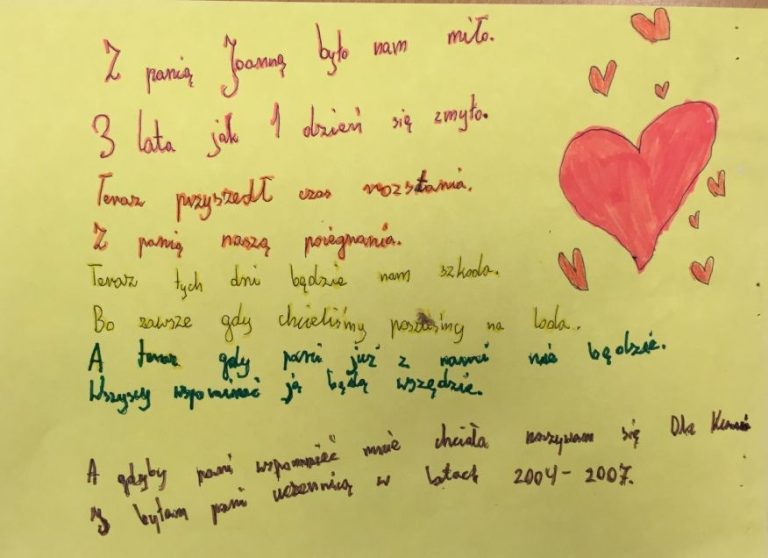 Z panią Joanną było nam miło.
3 lata jak 1 dzień się zmyło.
Teraz przyszedł czas rozstania.
Z panią naszą pożegnania.
Teraz tych dni będzie nam szkoda.
Bo zawsze gdy chcieliśmy poszliśmy na loda.
A teraz gdy pani już z nami nie będzie.
Wszyscy wspominać ją będą wszędzie.
A gdyby pani wspomnieć mnie chciała nazywam się Ola
i byłam pani uczennicą w latach 2004-2007.